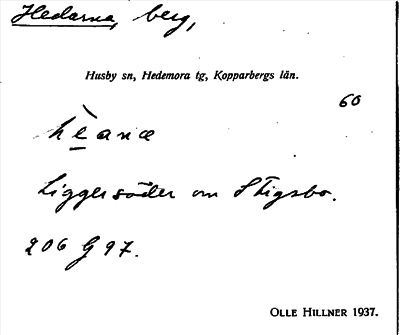 Hedarna, berg,
Husby sn, Hedemora tg, Kopparbergs län.
60
hèanæ
Ligger söder om Stigsbo.
206 G 97.
OLLE HILLNER 1937.